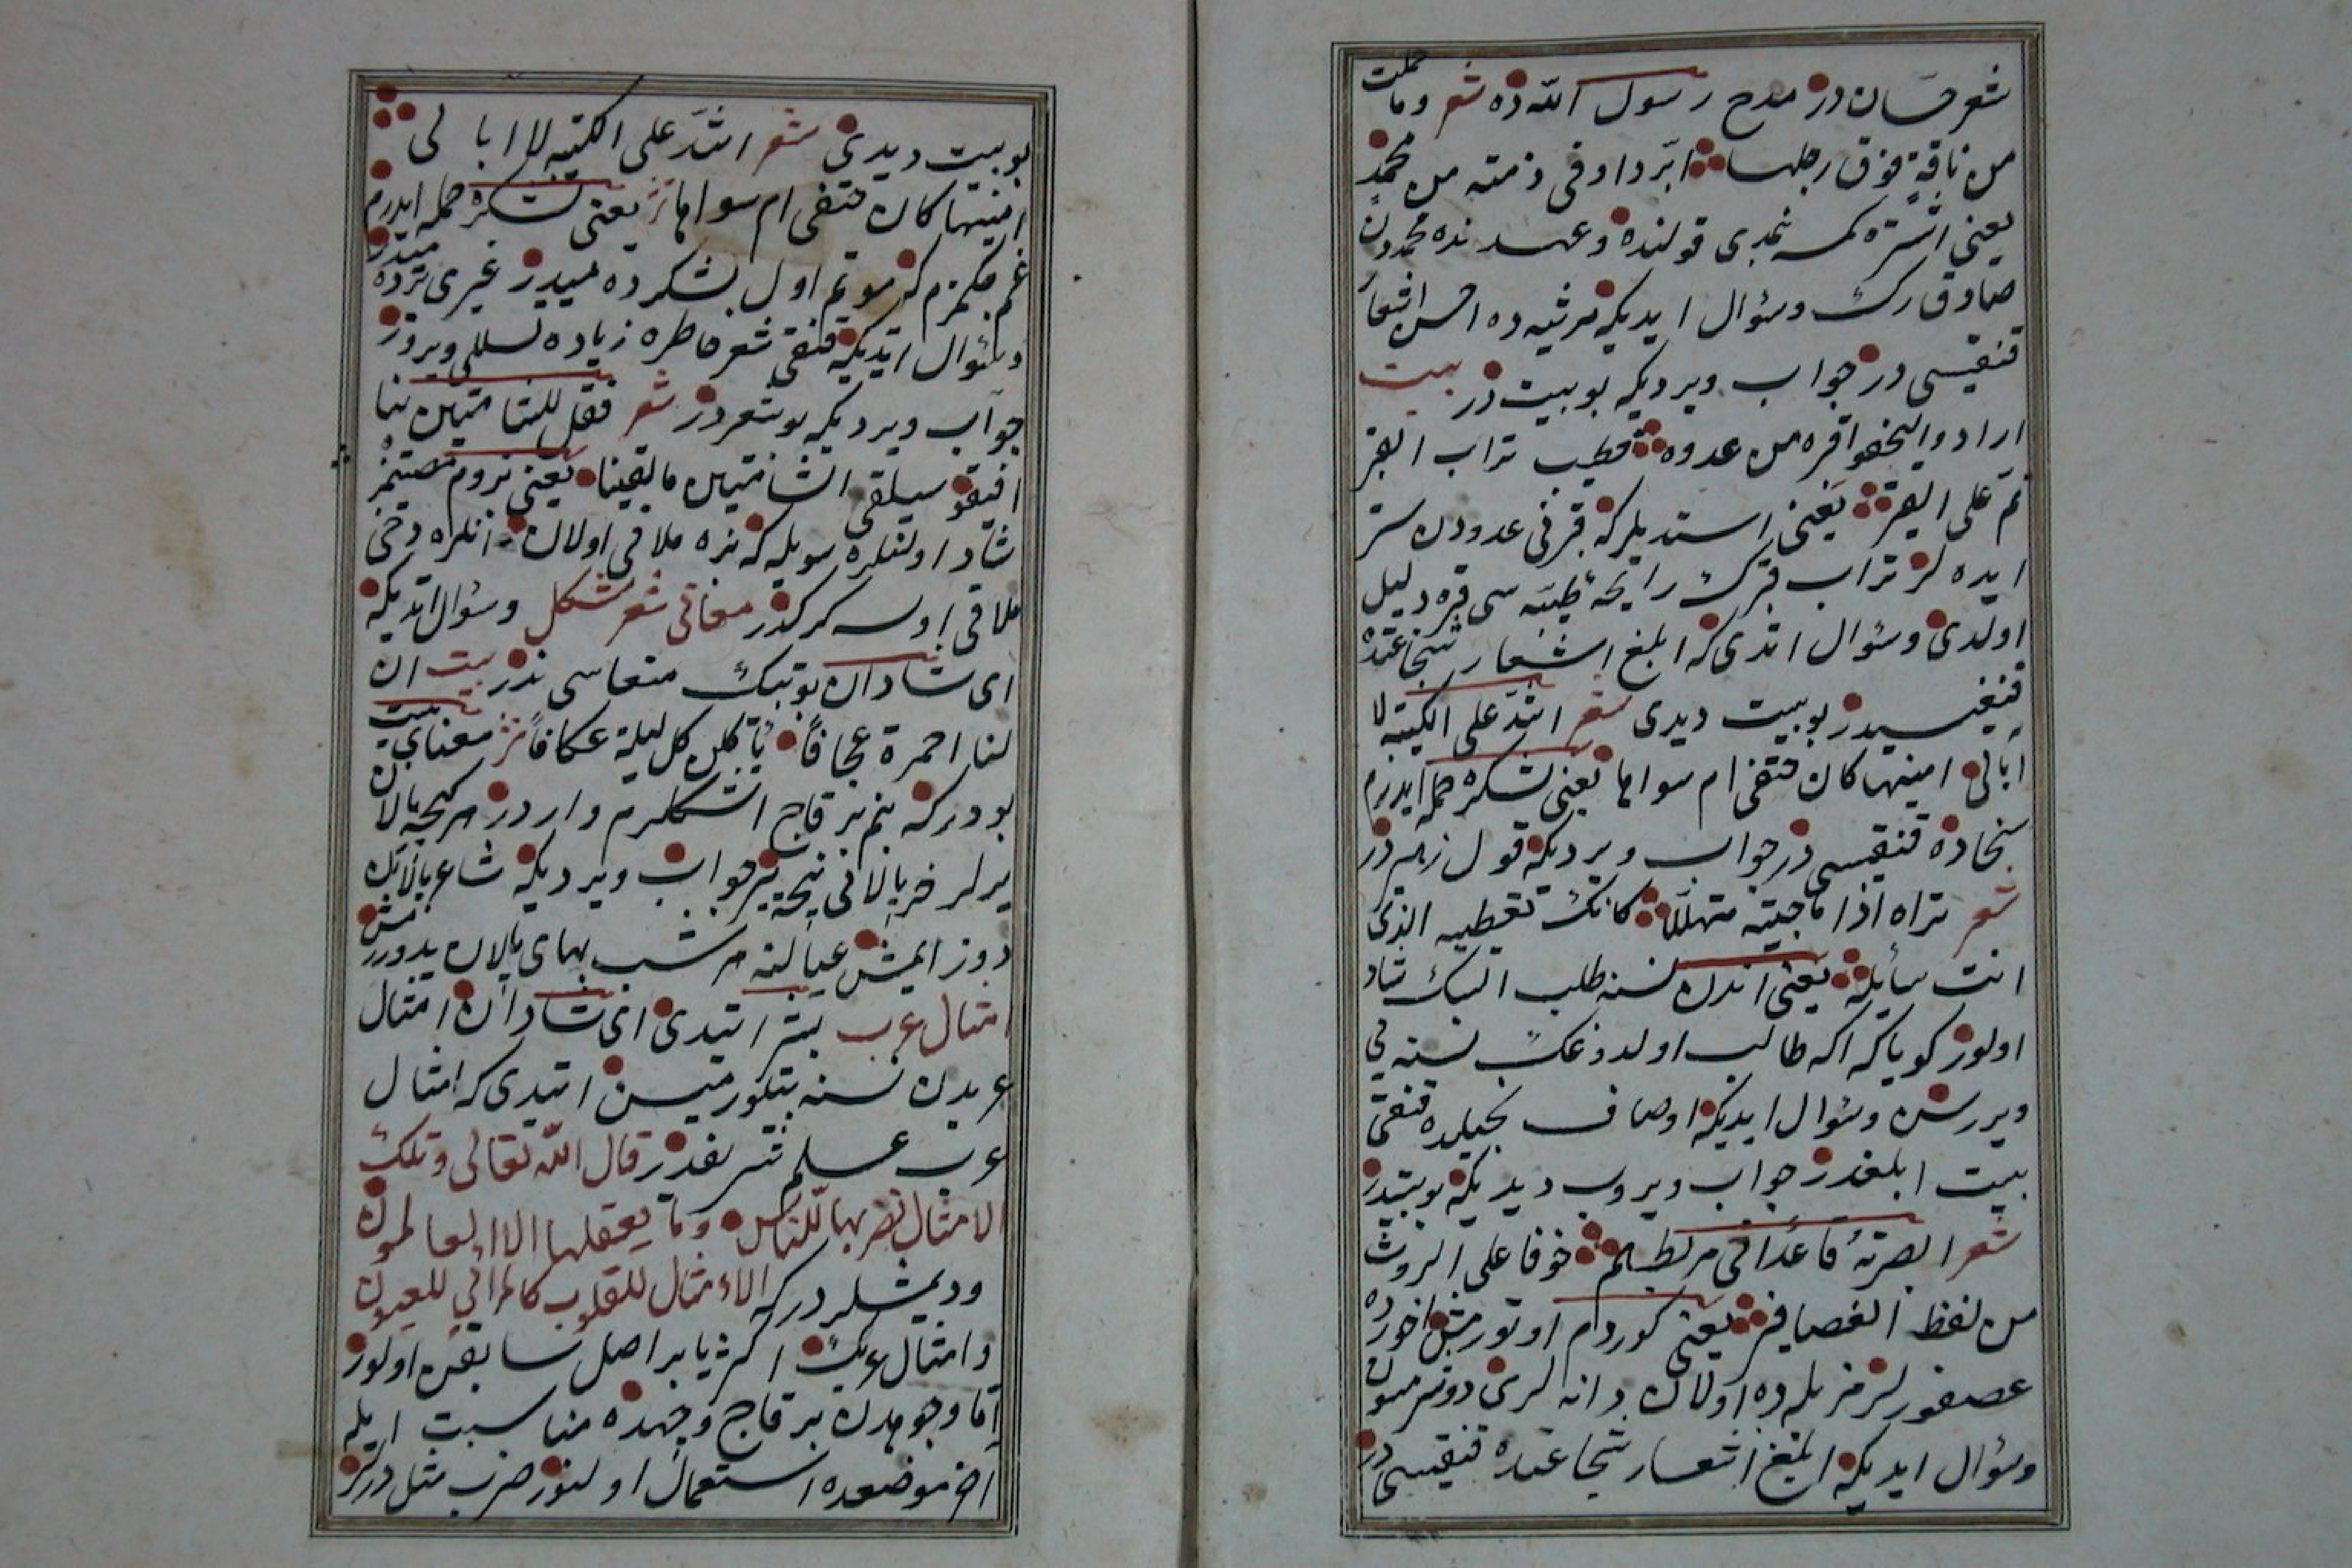 شعر حسان در مدح رسول الله ده شعر وما حملت
من ناقة فوق رجلها ابر داوفى ذمته من محمد
يعنى اشتره كمسه نمدى قولنده وعهدنده محمددن
صادق رك وسؤال ايديكه مرثيه ده احسن اشعار
قنقيسى در جواب ويرديكه بو بيت در بيت
ارادو اليخفوا قبره من عدوه فطيب تراب القبر
تم على القبر يعنى استديلركه قبرنى عدودن ستر
ايده لر تراب قبرك رايحۀ طيبه سى قبره دليل
اولدى وسؤال اتدى كه ابلغ اشعار شجاعتده
قنغيسيدر بو بيت ديدى شعر اشد على الكتيبه لا
ابالى امنيتها كان حتفى ام سواها يعنى لشكره حمله ايدرم
سخاده قنقيسى در جواب ويرديكه قول زهير در
شعر تراه اذا ما جيته متهللا كانك تعطيه الذى
انت سايله يعنى اندن نسنه طلب اتسك شاد
اولور كوياكه اكه طالب اولدوغك نسنه يى
ويررسن وسؤال ايديكه اوصاف بخيلده قنقى
بيت ابلغدر جواب ويروب ديديكه بو بيتدر
شعر ابصرته قاعدا فى مرلطم خوفا على الروث
من لفظ العصافير يعنى كوردم اوتورمش اخورده
عصفورلر مزبله ده اولان دانه لرى دوشرمسون
وسؤال ايديكه ابلغ اشعار شجاعتده قنقيسى در
بو بيت ديدى شعر اشد على الكتيبه لا ابالى
امنيتها كان حتفى ام سواها نثر يعنى لشكره حمله ايدرم
غم يكمزم كه موتم اول لشكرده ميدر غيرى يرده ميدر
وسؤال اتديكه قنقى شعر خاطره زياده تسللى ويرور
جواب ويرديكه بو شعردر شعر فقل للشامتين بنا
افيقو سيلقى الشامتين ما لقينا يعنى بزوم مصيتمز
شاد اولنلره سويله كه بزه ملاقى اولان انلره دخى
ملاقى اولسه كركدر معانى شعر مشكل وسؤال اتديكه
اى شادان بو بيتك معناسى ندر بيت ان
لنا احمرة عجافا ياكلن كل ليلة عكافا نثر معناى بيت
بودركه بنم بر قاج اشكلرم واردر هر كيجه پالان
يرلر خر پالانى نيجه ير جواب ويرديكه شاعر پالانك
دوز ايمش عيالنه هر شب بهاى پالان يدوررمش
امثال عرب بشر ايتدى اى شادان امثال
عربدن نسنه بيلورميسن ايتدى كه امثال
عرب علم شريفدر قال الله تعالى وتلك
الامثال نضربها للناس وما يعقلها الا العالمون
وديمشلردركه الامثال للقلوب كالمرائى للعيون
وامثال عربك اكثريا بر اصل سابقى اولور
اما وجوهدن بر قاج وجهده مناسبت ايله
آخر موضعده استعمال اولنور ضرب مثل درلر